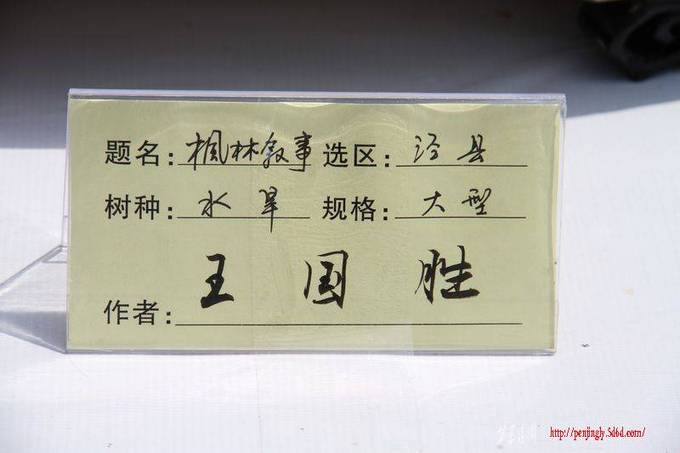 题名：枫林叙事 选区：泾县
树种：水旱 规格：大型
作者：王国胜
http://penjingly.5d6d.com/